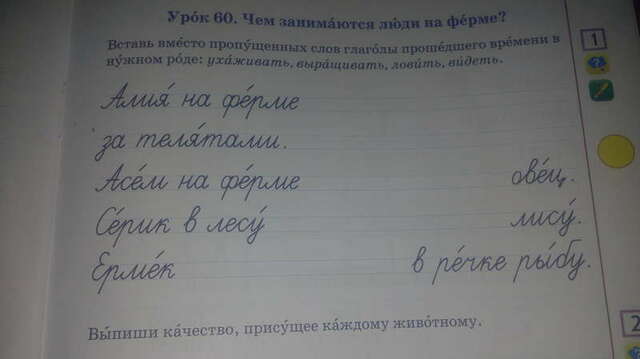 Уро́к 60. Чем занима́ются лю́ди на фе́рме?
Вставь вме́сто пропу́щенных слов глаго́лы проше́дшего вре́мени в
ну́жном ро́де: уха́живать, выра́щивать, лови́ть, ви́деть.
1
Алия́ на фе́рме
за теля́тами.
Асе́м на фе́рме ове́ц.
Се́рик в лесу́ лису́.
Ерме́к в ре́чке ры́бу.
Вы́пиши ка́чество, прису́щее ка́ждому живо́тному.
2